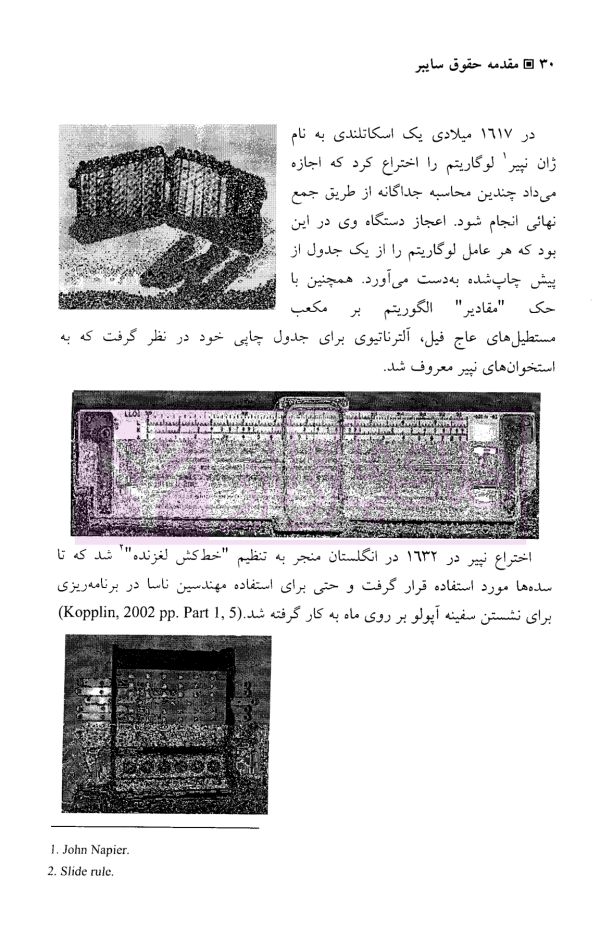 ۳۰ ▣ مقدمه حقوق سایبر
در ۱٦۱۷ میلادی یک اسکاتلندی به نام
ژان نپیر۱ لوگاریتم را اختراع کرد که اجازه
می‌داد چندین محاسبه جداگانه از طریق جمع
نهائی انجام شود. اعجاز دستگاه وی در این
بود که هر عامل لوگاریتم را از یک جدول از
پیش چاپ‌شده به‌دست می‌آورد. همچنین با
حک "مقادیر" الگوریتم بر مکعب
مستطیل‌های عاج فیل، آلترناتیوی برای جدول چاپی خود در نظر گرفت که به
استخوان‌های نپیر معروف شد.
اختراع نپیر در ۱٦۳۲ در انگلستان منجر به تنظیم "خط‌کش لغزنده"۲ شد که تا
سده‌ها مورد استفاده قرار گرفت و حتی برای استفاده مهندسین ناسا در برنامه‌ریزی
برای نشستن سفینه آپولو بر روی ماه به کار گرفته شد.(Kopplin, 2002 pp. Part 1, 5)
1. John Napier.
2. Slide rule.